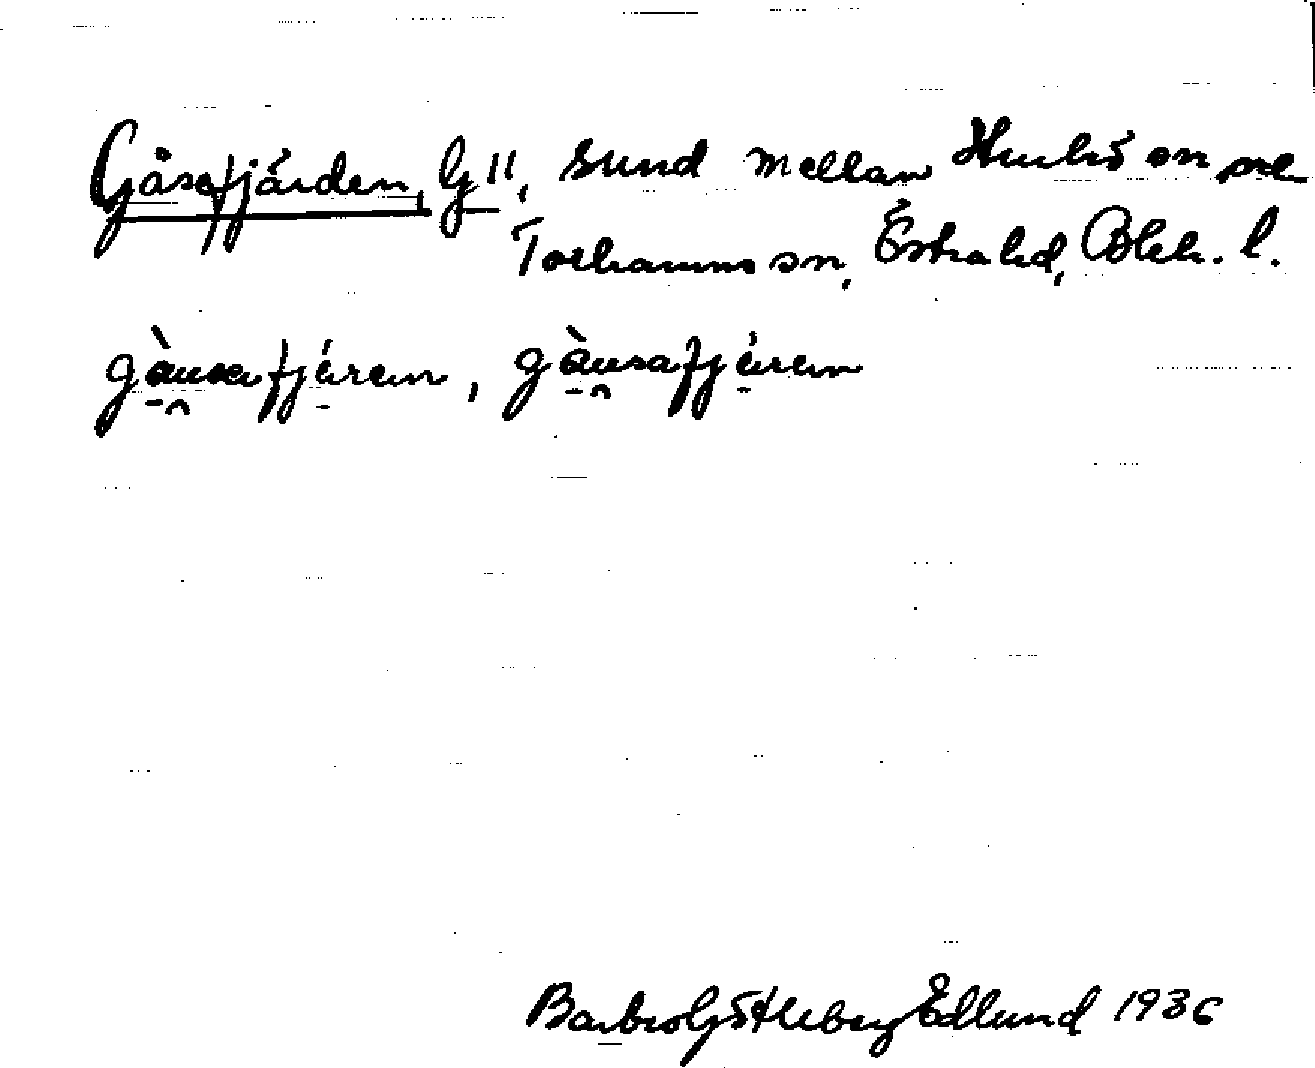 Gåsefjärden, G 11, sund mellan Sturkö sn och
Torhamns sn, Östra hd, Blek. l.
gàusafjären, gàusafjären
Barbro Götleborg Edlund 1936